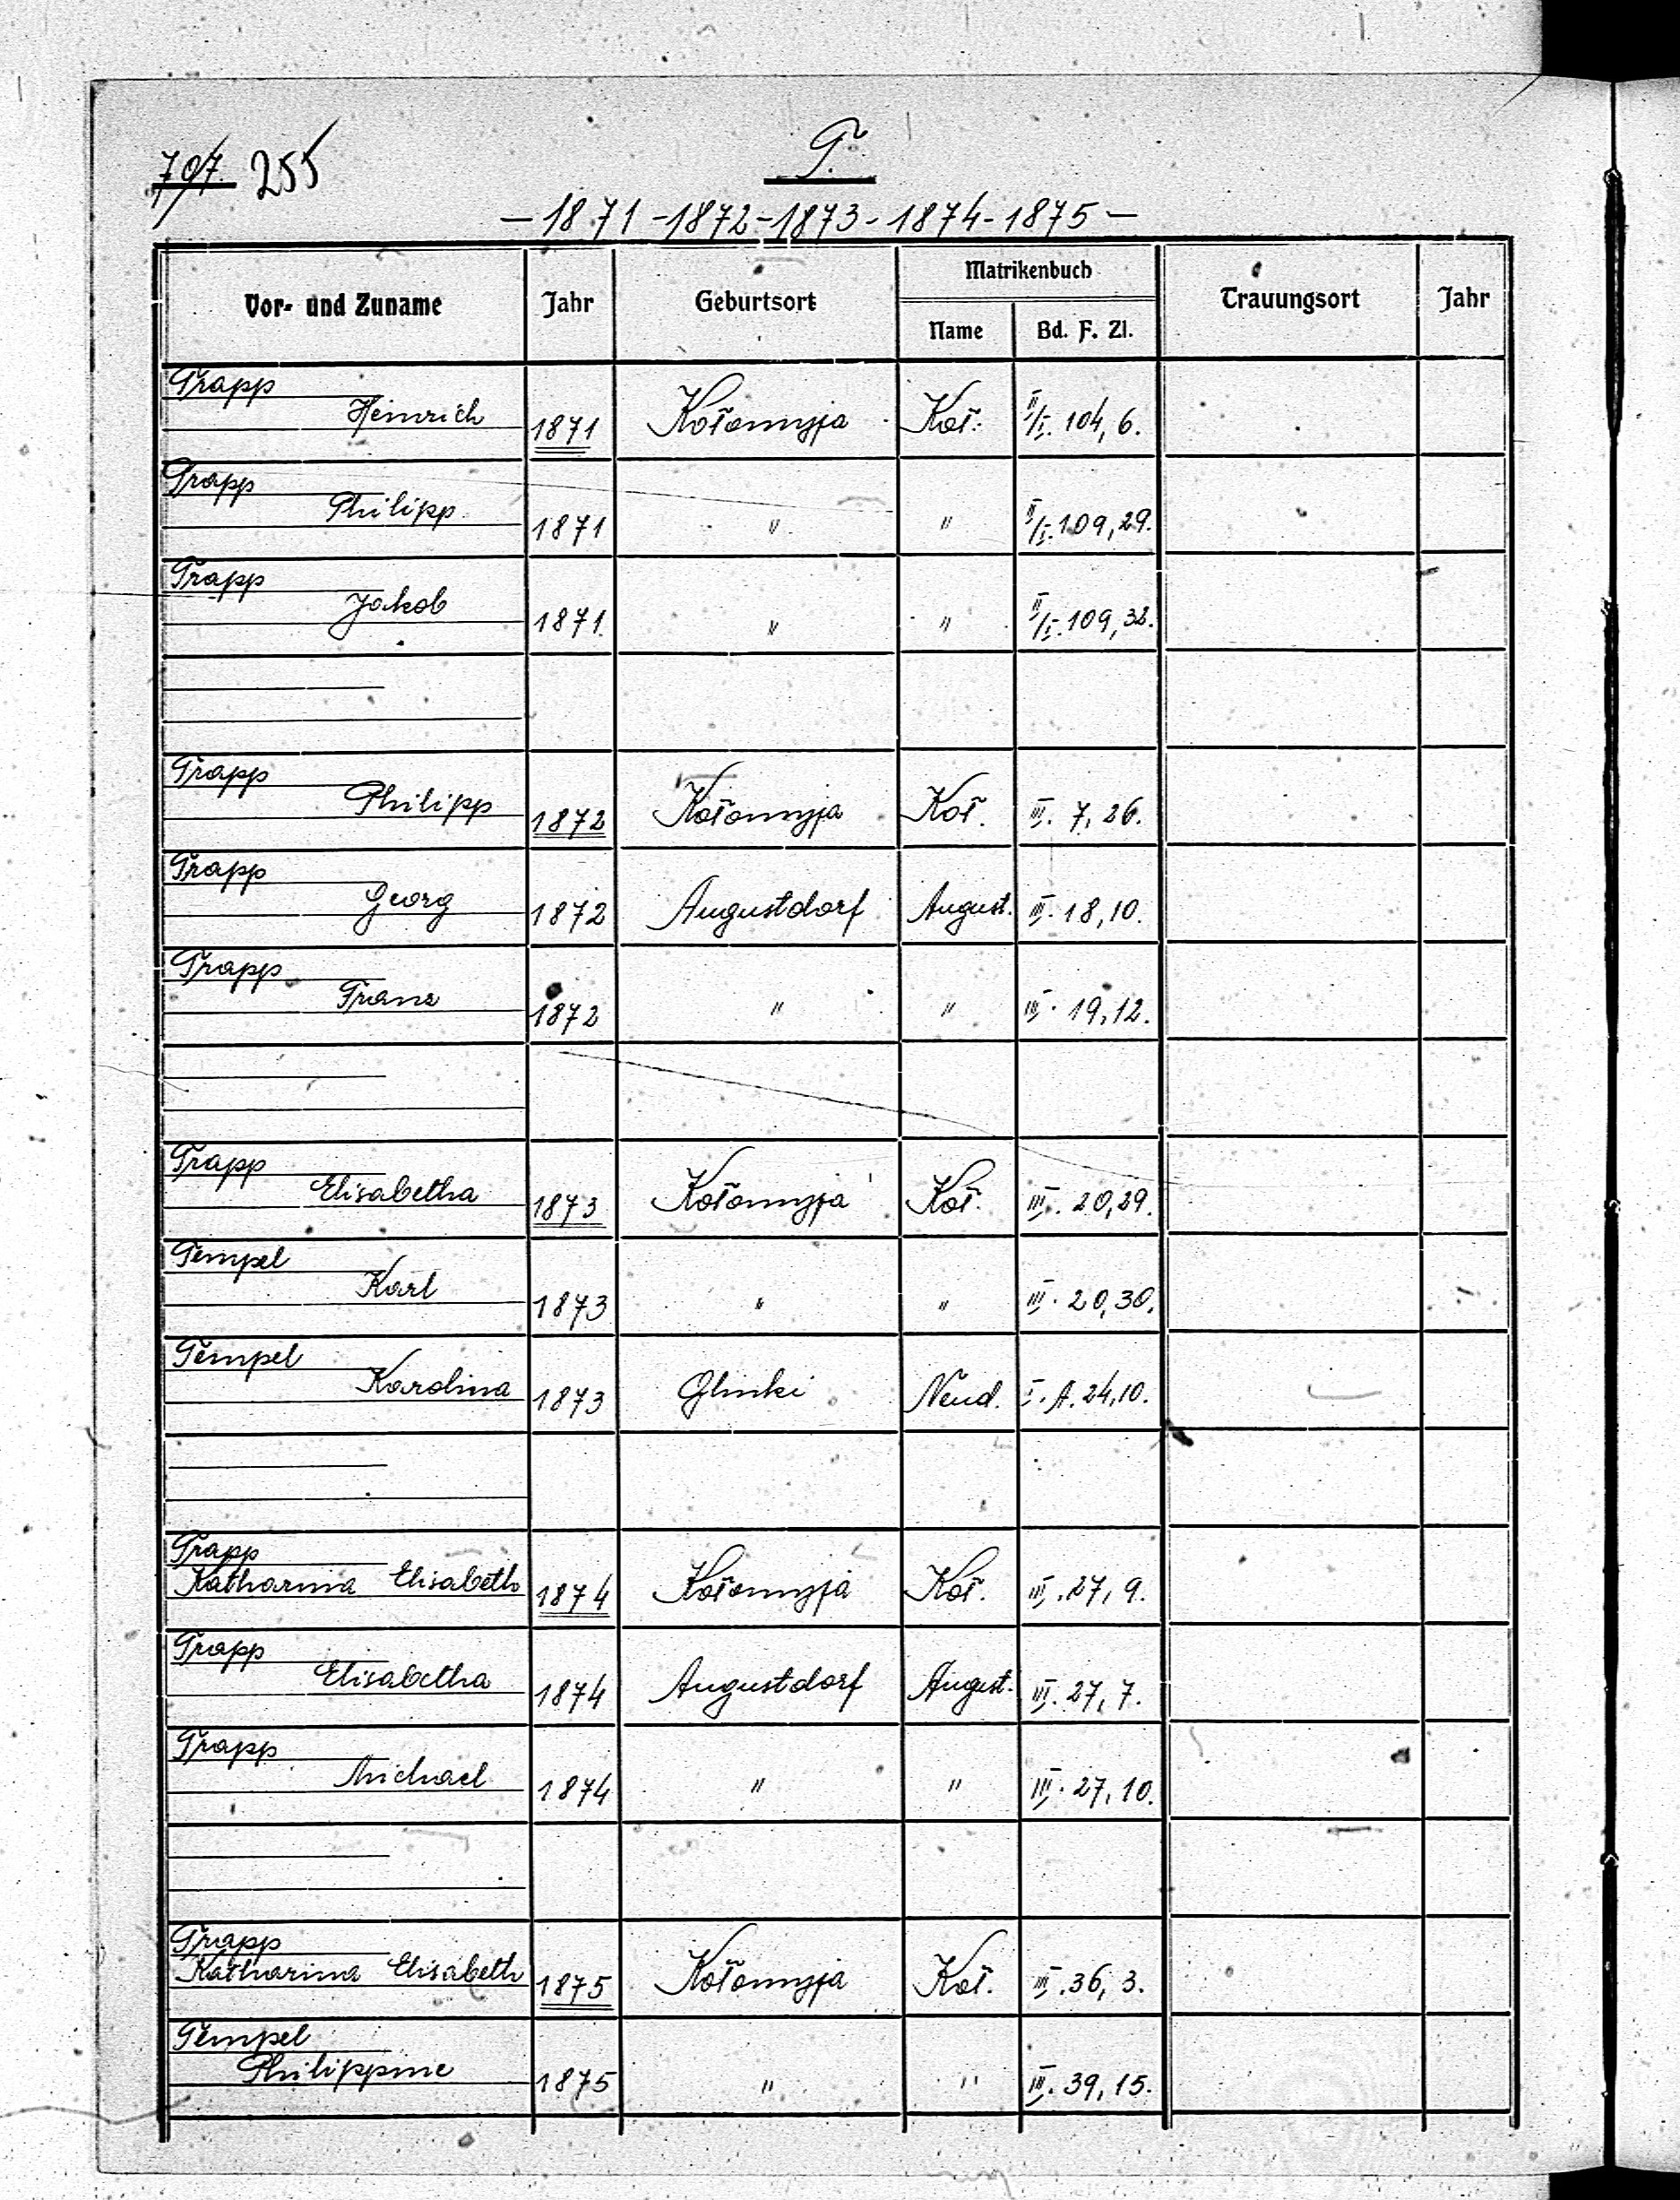 707. 255
T.
- 1871 - 1872 - 1873 - 1874 - 1875 -
Vor- und Zuname Jahr Geburtsort Matrikenbuch Trauungsort Jahr
Name Bd. F. Zl.
Trapp
Heinrich 1871 Kołomyja Koł. II/I. 104, 6.
Trapp
Philipp 1871 " " II/I. 109, 29.
Trapp
Jakob 1871 " " II/I. 109, 32.
Trapp
Philipp 1872 Kołomyja Koł. III. 7, 26.
Trapp
Georg 1872 Augustdorf August. III. 18, 10.
Trapp
Franz 1872 " " III. 19, 12.
Trapp
Elisabetha 1873 Kołomyja Koł. III. 20, 29.
Tempel
Karl 1873 " " III. 20, 30.
Tempel
Karolina 1873 Glinki Neud. I. A. 24, 10.
Trapp
Katharina Elisabeth 1874 Kołomyja Koł. III. 27, 9.
Trapp
Elisabetha 1874 Augustdorf August. III. 27, 7.
Trapp
Michael 1874 " " III. 27, 10.
Trapp
Katharina Elisabeth 1875 Kołomyja Koł. III. 36, 3.
Tempel
Philippine 1875 " " III. 39, 15.